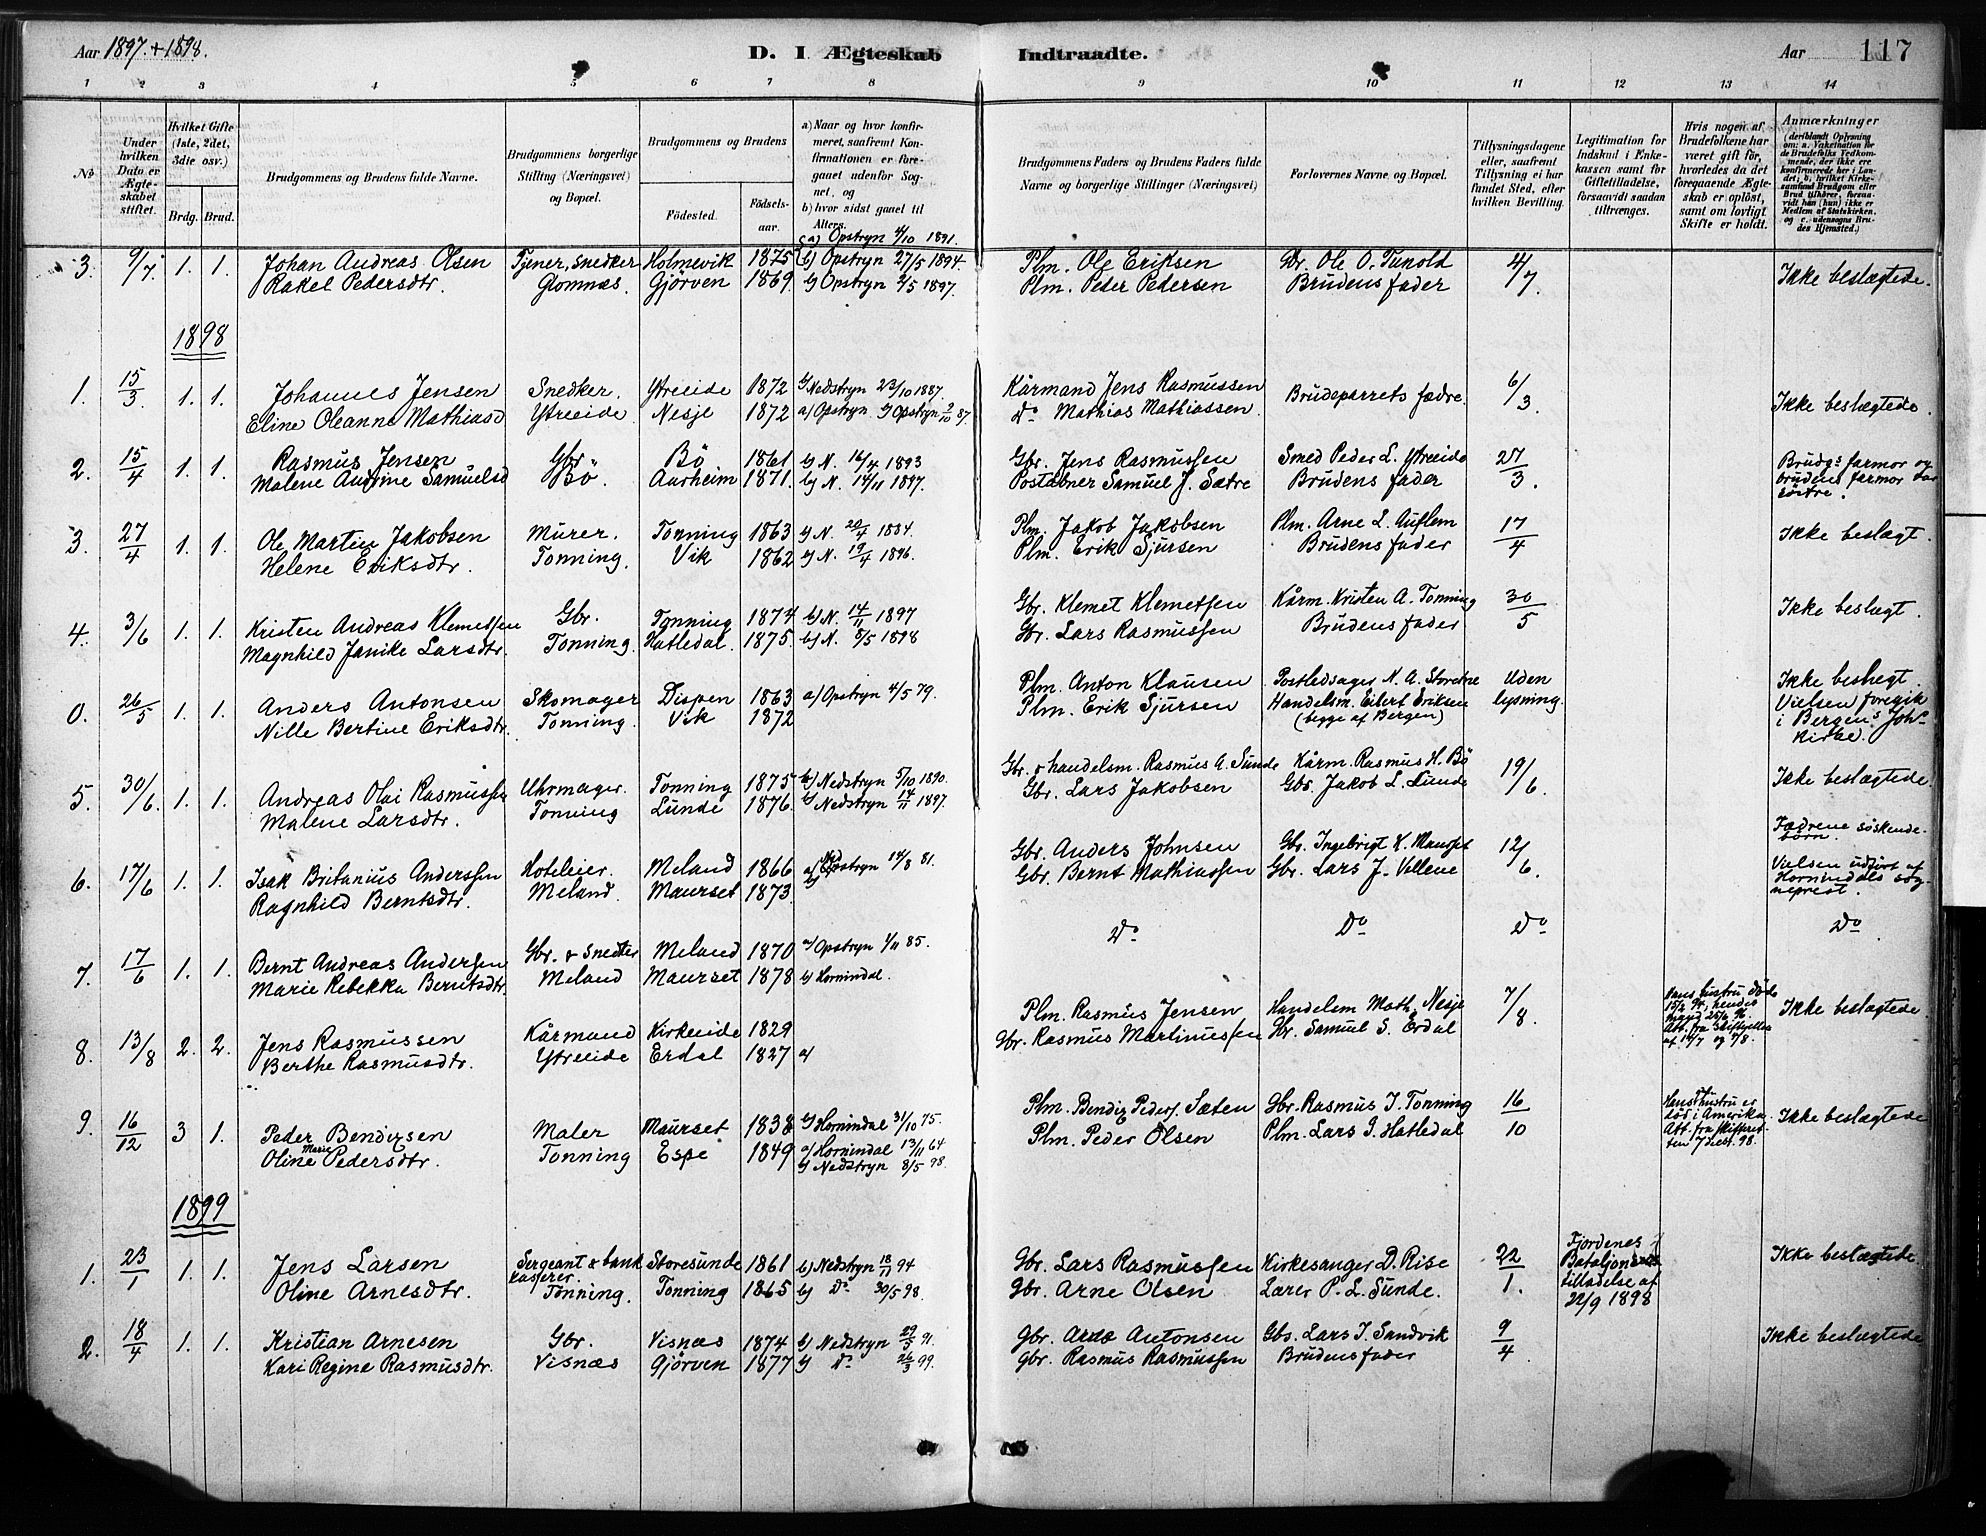 Aar 1897 + 1898.
D. I Ægteskab Indtraadte.
Aar 117
1 2 3 4 5 6 7 8 9 10 11 12 13 14
No
Under hvilken Dato er Ægteskabet stiftet.
Hvilket Gifte (1ste, 2det, 3die osv.)
Brdg. Brud.
Brudgommens og Brudens fulde Navne.
Brudgommens borgerlige Stilling (Næringsvei) og Bopæl.
Brudgommens og Brudens
Födested. Födselsaar.
a) Naar og hvor konfirmeret, saafremt Konfirmationen er foregaaet udenfor Sognet, og
b) hvor sidst gaaet til Alters.
Brudgommens Faders og Brudens Faders fulde Navne og borgerlige Stillinger (Næringsvei)
Forlovernes Navne, og Bopæl.
Tillysningsdagene eller, saafremt Tillysning ei har fundet Sted, efter hvilken Bevilling.
Legitimation for Indskud i Enkekassen samt for Giftetilladelse, forsaavidt saadan tiltrænges.
Hvis nogen af Brudefolkene har været gift før, hvorledes da det foregaaende Ægteskab er oplöst, samt om lovligt Skifte er holdt.
Anmærkninger (deriblandt Oplysning om: a. Vakcination for de Brudefolks Vedkommende, der ikke ere konfirmerede her i Landet; b. hvilket Kirkesamfund Brudgom eller Brud tilhörer, forsaavidt han (hun) ikke er Medlem af Statskirken, og c. udensogns Brudes Hjemsted.)
3. 9/7 1. 1. Johan Andreas Olsen Tjener, snedker Holmevik 1875 a) Opstryn 4/10 1891. b) Opstryn 27/5 1894. Plm. Ole Eriksen Gbr. Ole O. Tunold 4/7 Ikke beslægtede.
Rakel Pedersdtr. Glomnæs. Gjörven 1869. b) Opstryn 2/5 1897. Plm. Peder Pedersen Brudens fader
1898
1. 15/3 1. 1. Johannes Jensen Snedker. Ytreeide 1872 b) Nedstryn 23/10 1887. Kårmand Jens Rasmussen Brudeparrets fædre. 6/3. Ikke beslægtede.
Eline Oleanne Mathiasd Ytreeide. Nesje 1872 a) Opstryn b) Opstryn 2/10 87. Do Mathias Mathiassen
2. 15/4 1. 1. Rasmus Jensen Gbr. Bö 1861 b) N. 16/4 1893 Gbr. Jens Rasmussen Smed Peder L. Ytreeide 27/3. Brudgs farmor og brudens farmor var söstre.
Malene Augine Samuelsd Bö. Aarheim 1871. b) N. 14/11 1897. Postaabner Samuel J. Sætre Brudens fader
3. 27/4 1. 1. Ole Martin Jakobsen Murer. Tonning 1863 b) N. 20/4 1884. Plm. Jakob Jakobsen Plm. Arne L. Auflem 17/4 Ikke beslægt.
Helene Eriksdtr. Tonning. Vik 1862 b) N. 19/4 1896. Plm. Erik Sjursen Brudens fader
4. 3/6 1. 1. Kristen Andreas Klemetsen Gbr. Tonning 1874 b) N. 14/11 1897 Gbr. Klemet Klemetsen Kårm. Kristen A. Tonning 30/5 Ikke beslægt.
Magnhild Janike Larsdtr. Tonning. Hatledal. 1875. b) N. 8/5 1898 Gbr. Lars Rasmussen Brudens fader
0. 26/5 1. 1. Anders Antonsen Skomager Dispen 1863 a) Opstryn 4/5 79. Plm. Anton Klausen Postledsager N. A. Uden lysning. Ikke beslegt. Vielsen foregik i Bergens Johs kirke.
Nille Bertine Eriksdtr. Tonning. Vik 1872 Plm. Erik Sjursen Handelsm. Eilert Eriksen (begge af Bergen)
5. 30/6. 1. 1. Andreas Olai Rasmussen Uhrmager. Tonning 1875 b) Nedstryn 5/10 1890. Gbr. & handelsm. Rasmus A. Sunde Kårm. Rasmus H. Bö 19/6. Ikke beslægtede.
Malene Larsdtr. Tonning Lunde 1876. b) Nedstryn 14/11 1897. Gbr. Lars Jakobsen Gbr. Jakob L. Lunde
6. 17/6 1. 1. Isak Britanius Anderssen Hoteleier. Meland 1866 a) Ned Opstryn 14/8 81. Gbr. Anders Johnsen Gbr. Ingebrigt K. Maurset 12/6. Fædrene söskendebörn. Vielsen udfört af Hornindals sogneprest.
Ragnhild Berntsdtr. Meland. Maurset 1873. b) Gbr. Bernt Mathiassen Gbr. Lars J. Vollene
7. 17/6 1. 1. Bernt Andreas Andersen Gbr. & Snedker Meland 1870 a) Opstryn 1/11 85. Do Do Do Do
Marie Rebekka Berntsdtr. Meland Maurset 1878 b) Hornindal.
8. 13/8 2. 2. Jens Rasmussen Kårmand Kirkeide 1829 Plm. Rasmus Jensen Handelsm Math. Nesje 7/8. Hans hustru döde 15/2 94, hendes mand 25/2 96. Att. fra skifteretten af 14/7 og 1/8. Ikke beslægtede
Berthe Rasmusdtr. Ytreeide Erdal 1827 a) Gbr. Rasmus Martinussen Gbr. Samuel S. Erdal
9. 16/12 3 1. Peder Bendixsen Maler Maurset 1838 b) Hornindal 31/10 75. Plm. Bendix Peders. Sæten Gbr. Rasmus J. Tonning 16/10 Hans hustru er död i Amerika. Att. fra skifteretten 7 Dec. 98. Ikke beslægtede
Oline Marie Pedersdtr. Tonning Espe 1849 a) Hornindal 13/11 64 b) Nedstryn 8/5 98. Plm. Peder Olsen Plm. Lars J. Hatledal
1899
1. 23/1 1. 1. Jens Larsen Sergeant & bankkasserer. Storesunde 1861 b) Nedstryn 18/11 94 Gbr. Lars Rasmussen Kirkesanger D. Rise 22/1. Fjordenes Bataljons tilladelse af 22/9 1898 Ikke beslægtede
Oline Arnesdtr. Tonning. Tonning 1865 b) Do 30/5 98. Gbr. Arne Olsen Lærer P. L. Sunde.
2. 18/4 1. 1. Kristian Arnesen Gbr. Visnæs 1874 b) Nedstryn 29/3 91. Gbr. Arne Antonsen Gbs. Lars J. Sandvik 9/4 Ikke beslægtede
Kari Regine Rasmusdtr. Visnæs Gjörven 1877 b) Do 26/3 99. Gbr. Rasmus Rasmussen Brudens fader